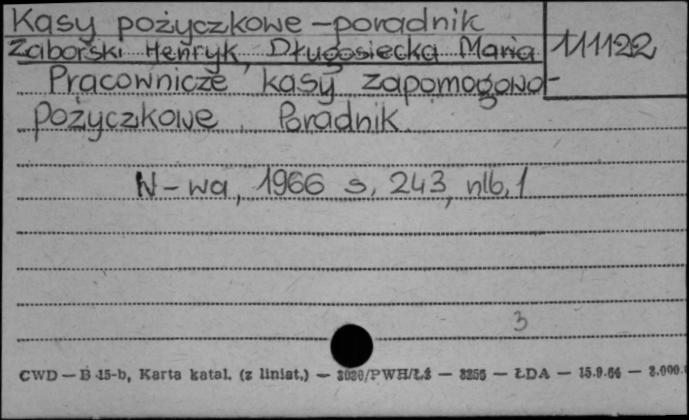 Kasy pożyczkowe - poradnik
111122
Zaborski Henryk, Długosiecka Maria
Pracownicze kasy zapomogowo-
pożyczkowe. Poradnik.
W-wa, 1966 s. 243, nlb. 1
3
CWD — B 15-b, Karta katal. (z liniat.) — /PWH/Ł3 — 3256 — ŁDA — 15.9.64 —